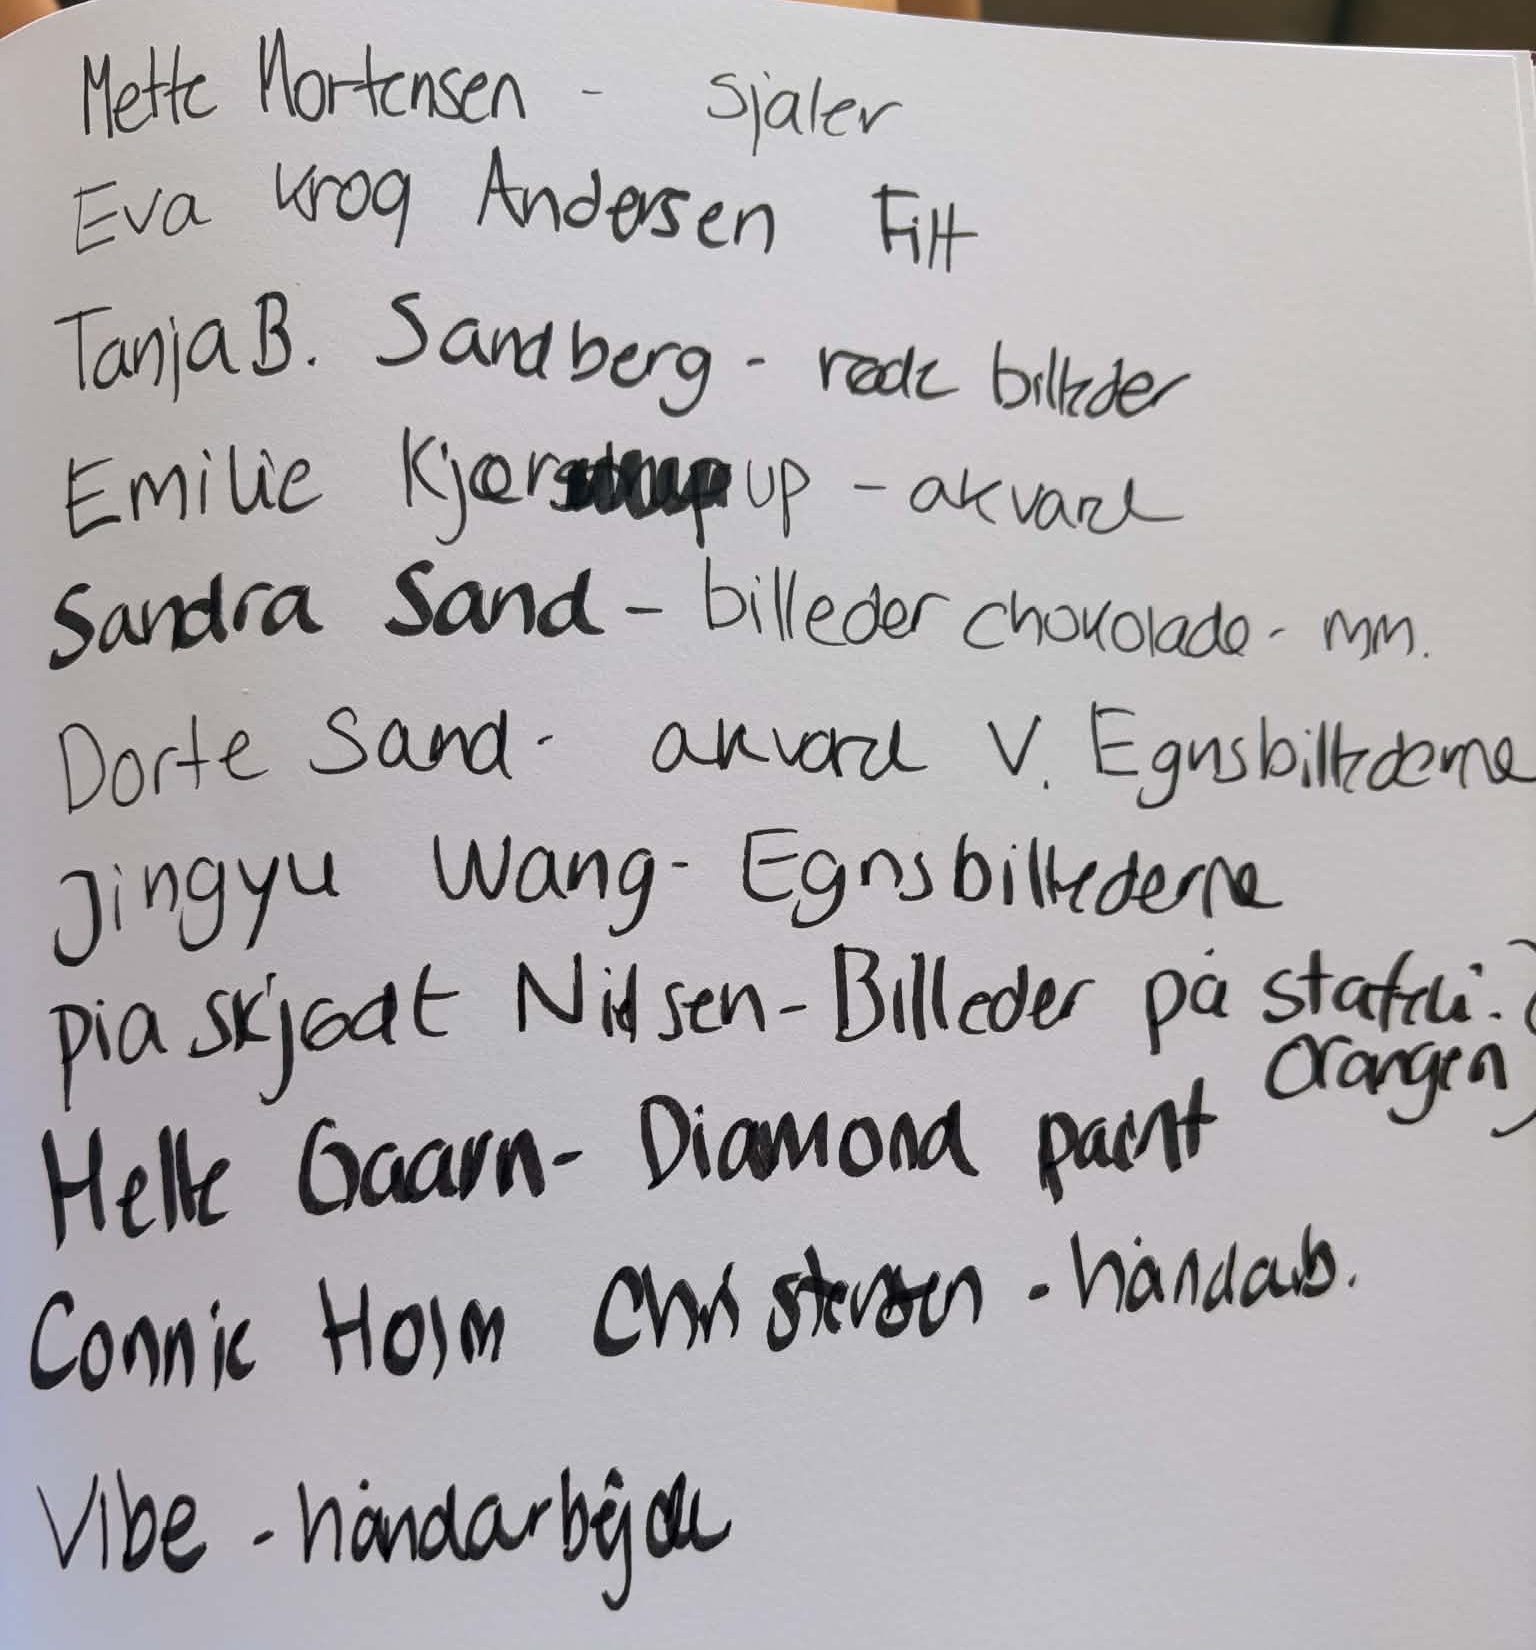 Mette Mortensen - sjaler
Eva Krog Andersen Filt
Tanja B. Sandberg - røde billeder
Emilie Kjær up - akvarel
Sandra Sand - billeder chokolade - mm.
Dorte Sand - akvarel v. Egnsbillederne
Jingyu Wang - Egnsbillederne
Pia Skjødt Nielsen - Billeder på staffeli.
Orangeri
Helle Gaarn - Diamond paint
Connie Holm Christensen - håndarb.
Vibe - håndarbejde